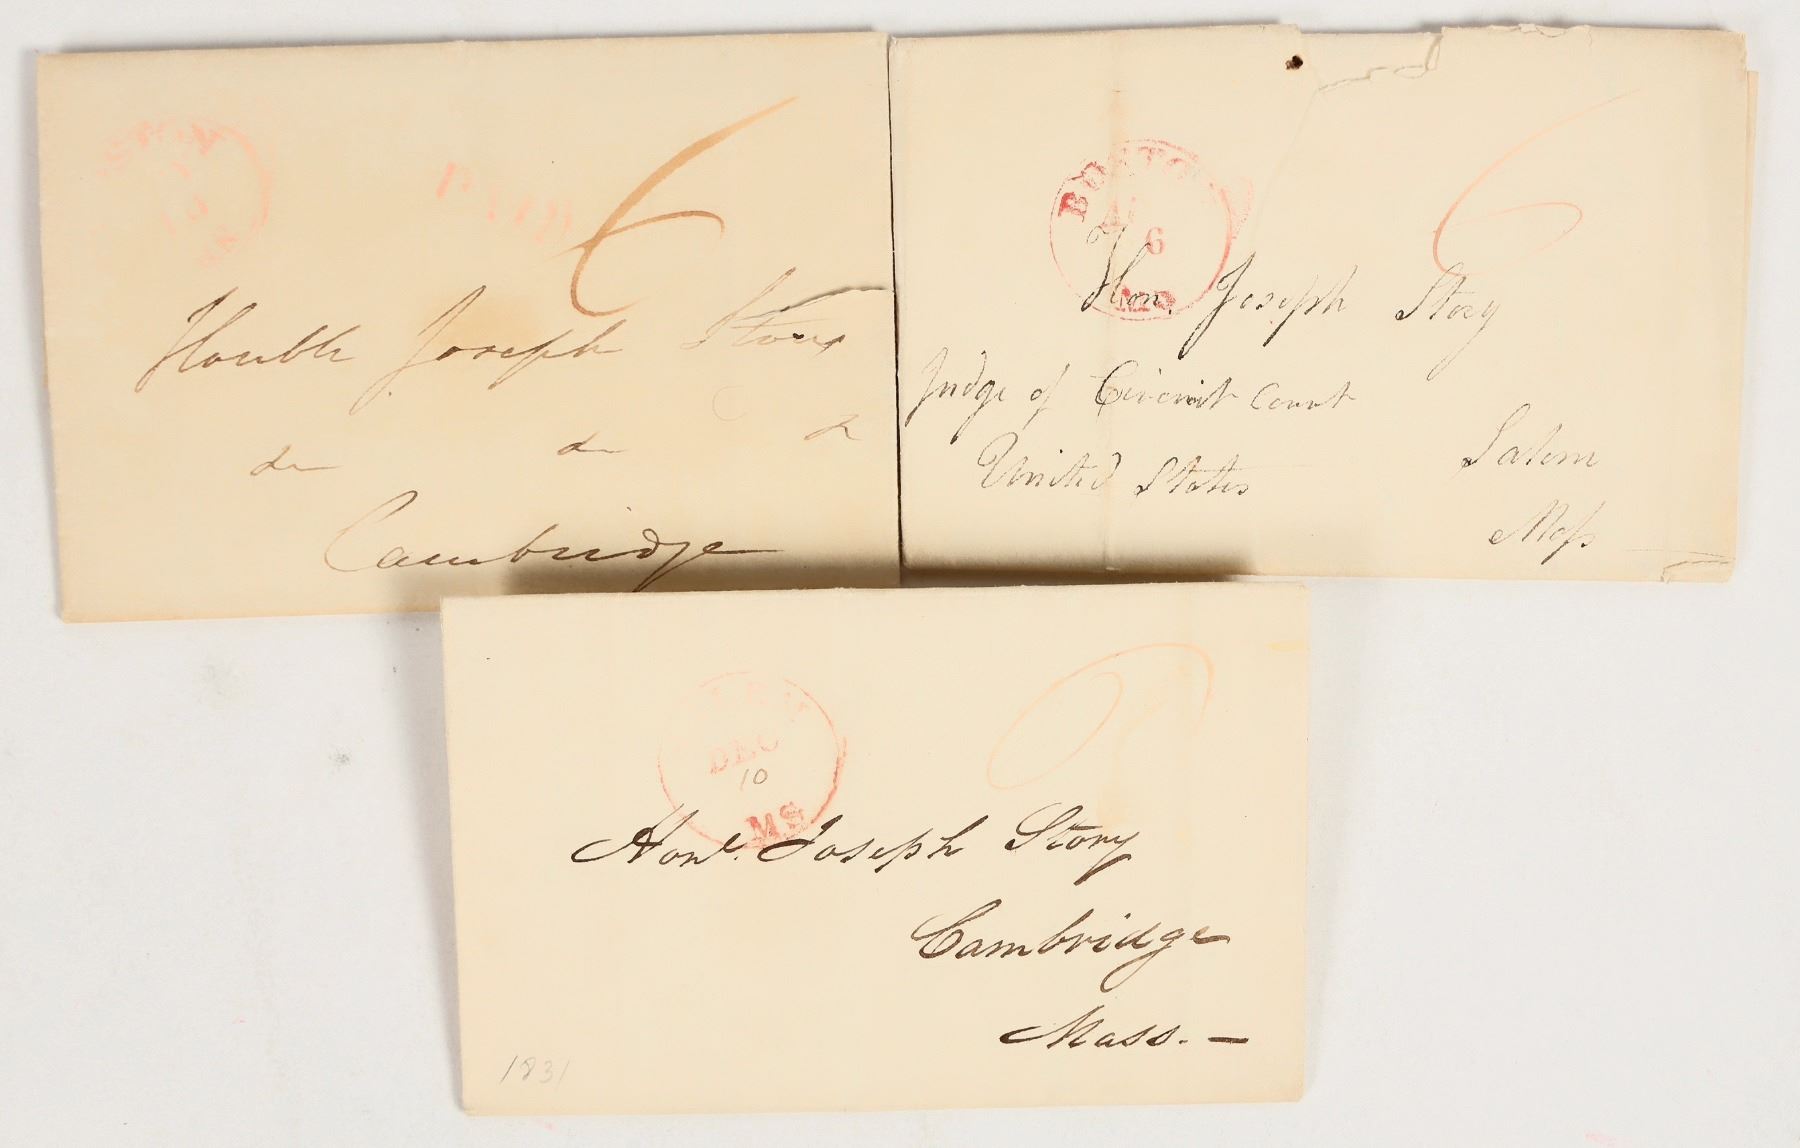 PAID
6
Honble Joseph Story
do do do
Cambridge
BOSTON
6
MS
6
Hon. Joseph Story
Judge of Circuit Court
United States
Salem
Mass
DEC
10
MS
Honl. Joseph Story
Cambridge
Mass. —
1831